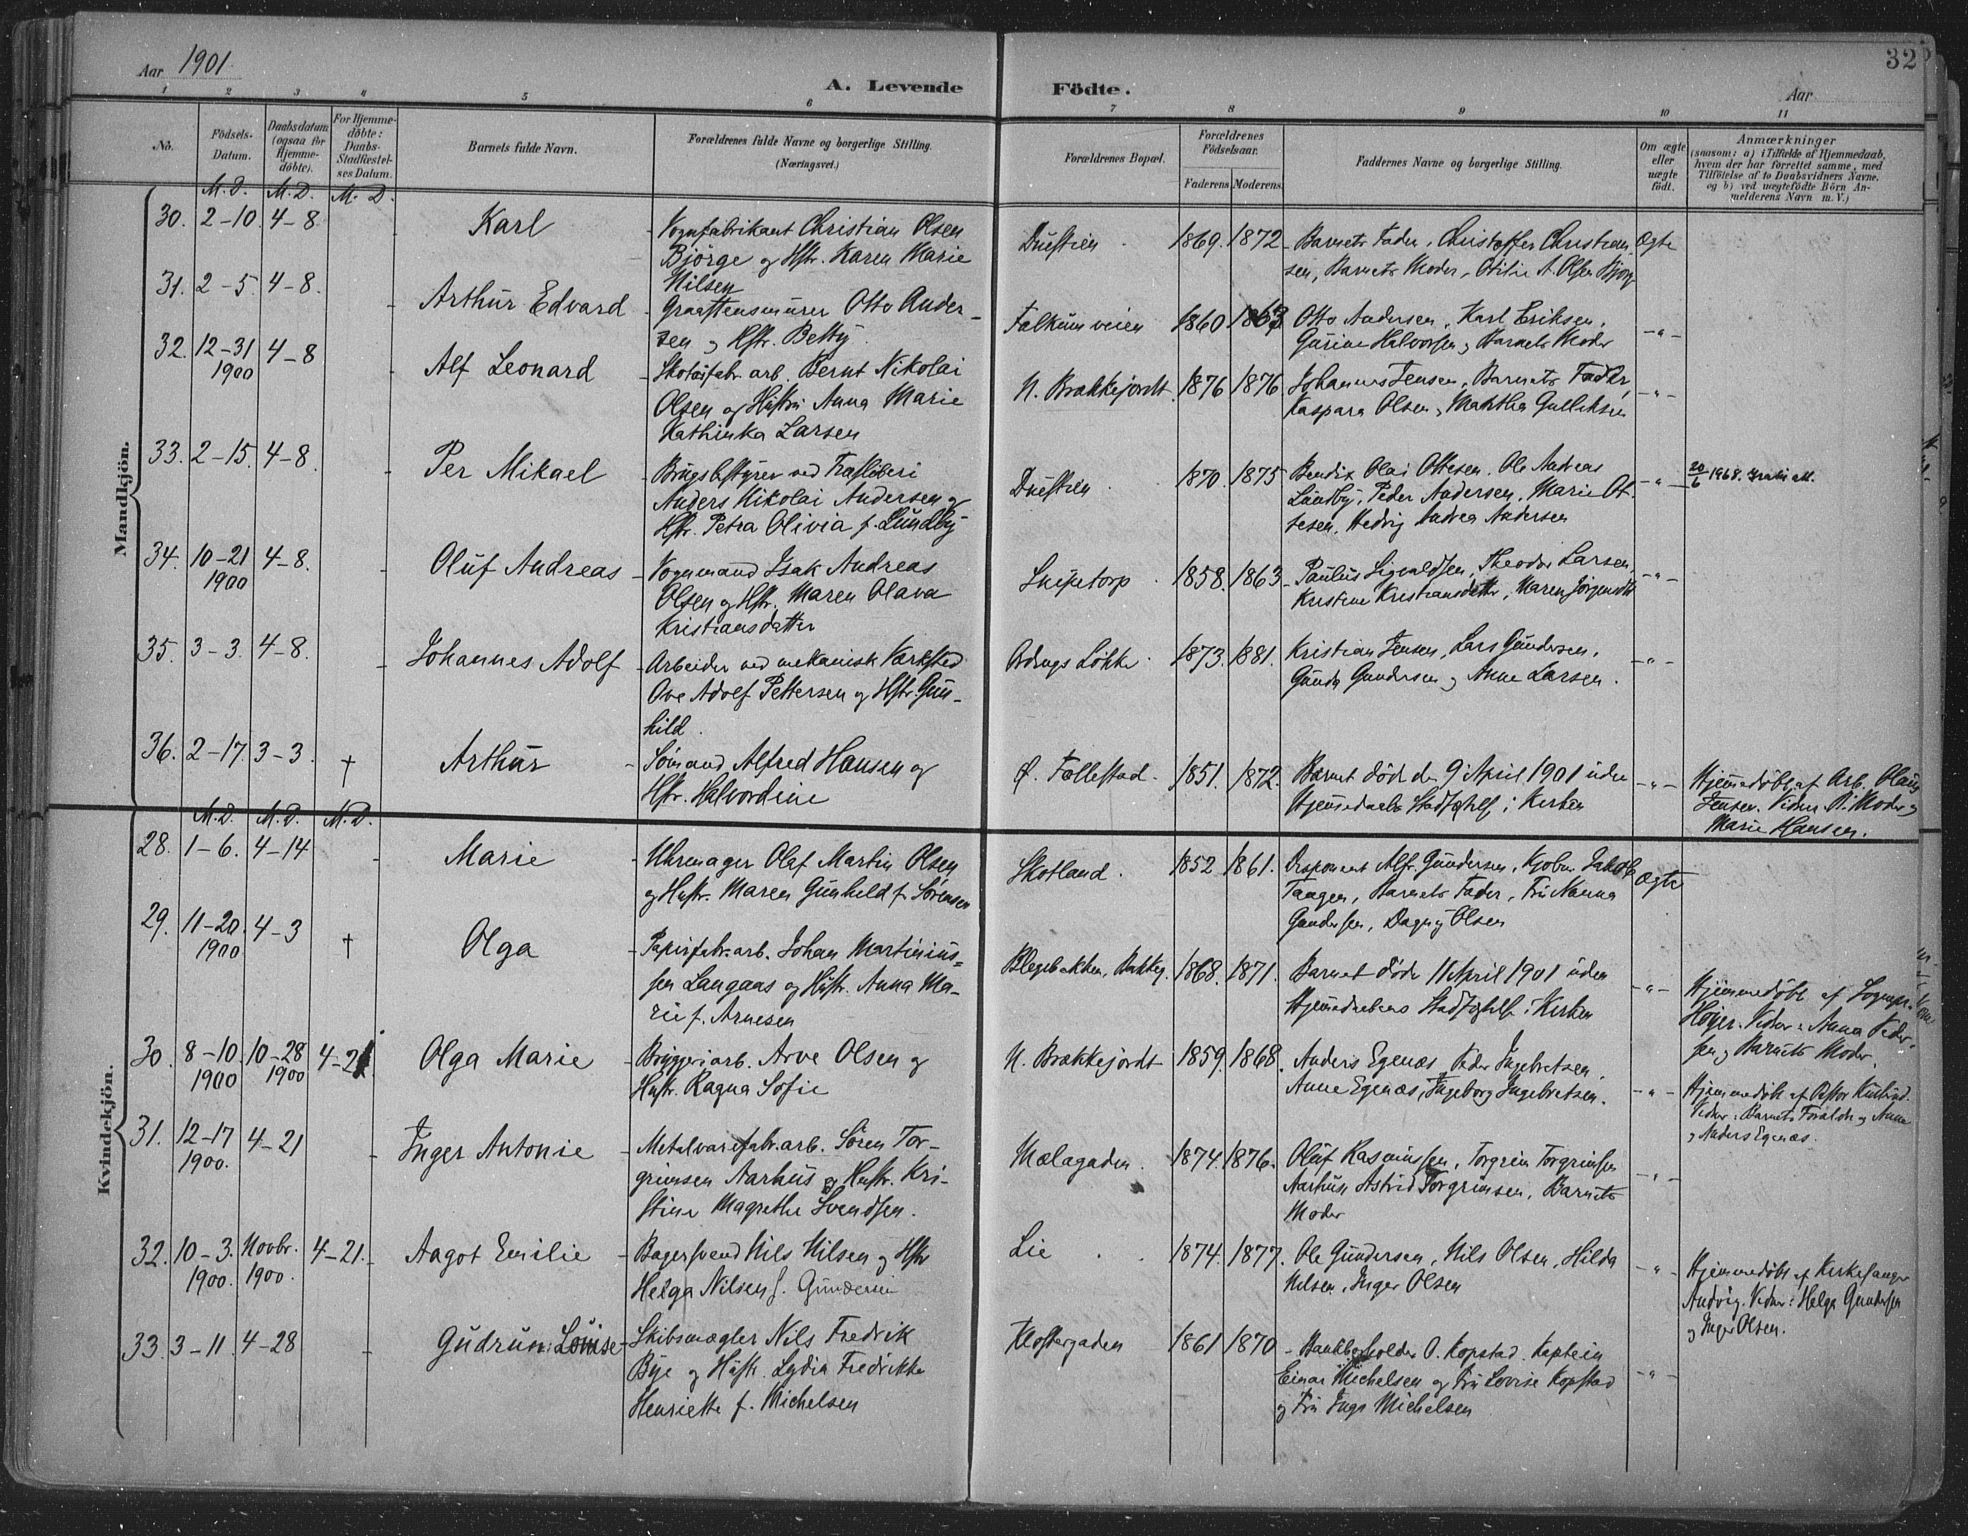 Aar 1901
A. Levende Födte.
Aar
32
1 2 3 4 5 6 7 8 9 10 11
No.
Födsels-Datum.
Daabsdatum (ogsaa for Hjemme-döbte).
For Hjemme-döbte: Daabs-Stadfæstel-ses Datum.
Barnets fulde Navn.
Forældrenes fulde Navne og borgerlige Stilling. (Næringsvei.)
Forældrenes Bopæl.
Forældrenes Födselsaar.
Faderens. Moderens.
Faddernes Navne og borgerlige Stilling.
Om ægte eller uægte födt.
Anmærkninger
(saasom: a) i Tilfælde af Hjemmedaab, hvem der har forrettet samme, med Tilföielse af to Daabsvidners Navne, og b) ved uægtefödte Börn An-melderens Navn m. V.)
Mandkjön.
M. D. M. D. M. D.
30. 2-10 4-8 Karl
Vognfabrikant Christian Olsen
Bjørge og Hstr. Karen Marie
Nilsen
Duestien 1869. 1872
Barnets Fader, Christoffer Christian
sen, Barnets Moder, Otilie A. Olsen Bjørge
Ægte
31. 2-5. 4-8. Arthur Edvard
Graastensmurer Otto Ander-
sen og Hstr. Betty
Falkumveien 1860
Otto Andersen, Karl Eriksen,
Gurine Halvorsen og Barnets Moder
-"-
32. 12-31 1900 4-8 Alf Leonard
Skotøifabr. arb. Bernt Nikolai
Olsen og Hustru Anna Marie
Kathinka Larsen
N. Brækkejordt. 1876 1876
Johannes Jensen, Barnets Fader,
Kaspara Olsen, Martha Gulliksen
-"-
33. 2-15. 4-8. Per Mikael
Brugsbestyrer ved Træsliberi
Anders Nikolai Andersen og
Hstr. Petra Olivia f. Lundby
Duestien 1870. 1875
Bendix Olai Ottesen, Ole Andreas
Lundby, Peder Andersen, Marie Ot-
tesen, Hedvig Andrea Andersen
-"-
20/6 1968. Gratis att.
34. 10-21 1900 4-8. Oluf Andreas
Vognmand Isak Andreas
Olsen og Hstr. Maren Olava
Kristiansdatter
Snipetorp 1858. 1863
Paulus Sigvaldsen, Theodor Larsen
Kristine Kristiansdatter, Maren Jørgensdtt
-"-
35. 3-3. 4-8. Johannes Adolf
Arbeider ved mekanisk Værksted
Ove Adolf Pettersen og Hstr. Gun-
hild.
Løkke 1873. 1881.
Kristian Jensen, Lars Gundersen,
Gunda Gundersen og Anne Larsen.
-"-
36. 2-17. 3-3. † Arthur
Sømand Alfred Hansen og
Hstr. Halvordine
Ø. Follestad. 1851. 1872.
Barnet døde den 9 April 1901 uden
Hjemmedaabs Stadfæstelse i Kirken
-"-
Hjemmedøbt af Arb. Olaus
Jensen. Vidner B. Moder og
Marie Hansen.
Kvindekjön.
M. D. M. D. M. D.
28. 1-6. 4-14 Marie
Uhrmager Olaf Martin Olsen
og Hustr. Maren Gunhild f. Sørensen
Skotland. 1852 1861.
Disponent Alf. Gundersen, Kjøbm. Jakob
Taagen, Barnets Fader, Fru Nanna
Gundersen, Dagny Olsen
Ægte
29. 11-20. 1900 4-3 † Olga
Papirfabr. arb. Johan Martinius-
sen Langaas og Hustr. Anna Ma-
rie f. Arnesen
Blegebakken, Bakkeg. 1868. 1871.
Barnet døde 11 April 1901 uden
Hjemmedaabens Stadfæstelse i Kirken
-"-
Hjemmedøbt af Sognepr.
Høyer. Vidner: Anna Peder-
sen og Barnets Moder.
30. 8-10 1900 10-28 1900 4-21 Olga Marie
Bryggeriarb. Arve Olsen og
Hustr. Ragna Sofie
N. Brækkejordt 1859. 1868.
Anders Egenæs, Peder Ingebretsen,
Anne Egenæs, Ingeborg Ingebretsen.
-"-
Hjemmedøbt af Pastor
Vidner: Barnets Forældre og Anne
og Anders Egenæs.
31. 12-17 1900. 4-21 Inger Antonie
Metalvarefabr. arb. Søren Tor-
grimsen Aarhus og Hustr. Kri-
stine Magrethe Svendsen.
Mælagaden. 1874. 1876.
Oluf Rasmussen, Torgrim Torgrimsen
Aarhus, Astrid Torgrimsen, Barnets
Moder
-"-
32. 10-3. 1900. Novbr. 1900. 4-21. Aagot Emilie
Bagersvend Nils Nilsen og Hstr
Helga Nilsen f. Gundersen
Lie 1874. 1877.
Ole Gundersen, Nils Olsen, Hilda
Nilsen, Inger Olsen
-"-
Hjemmedøbt af Kirkesanger
Andvig. Vidner: Helga Gundersen
og Inger Olsen.
33. 3-11. 4-28 Gudrun Louise
Skibsmægler Nils Fredrik
Bye og Hustr. Lydia Fredrikke
Henriette f. Michelsen
Klostergaden 1861 1870
O. Kopstad, Kaptein
Einar Michelsen og Fru Lovise Kopstad
og Fru Inga Michelsen
-"-